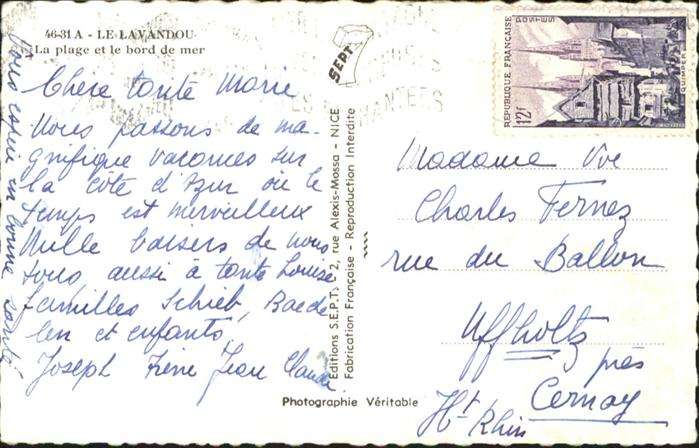 46-31 A - LE LAVANDOU
La plage et le bord de mer
Chère tante Marie
Nous passons de ma-
gnifique vacances sur
la côte d'Azur où le
temps est merveilleux
Mille baisers de nous
tous, aussi à tante Louise
familles Schieb, Baede
len et enfants,
Joseph Irène Jean Claude
en bonne santé
SEPT
Editions S.E.P.T. - 2, rue Alexis-Mossa - NICE
Fabrication Française - Reproduction Interdite
Photographie Véritable
REPUBLIQUE FRANÇAISE
POSTES
12f
QUIMPER
Madame Vve
Charles Fernez
rue du Ballon
Uffholtz
près
Cernay
Ht Rhin